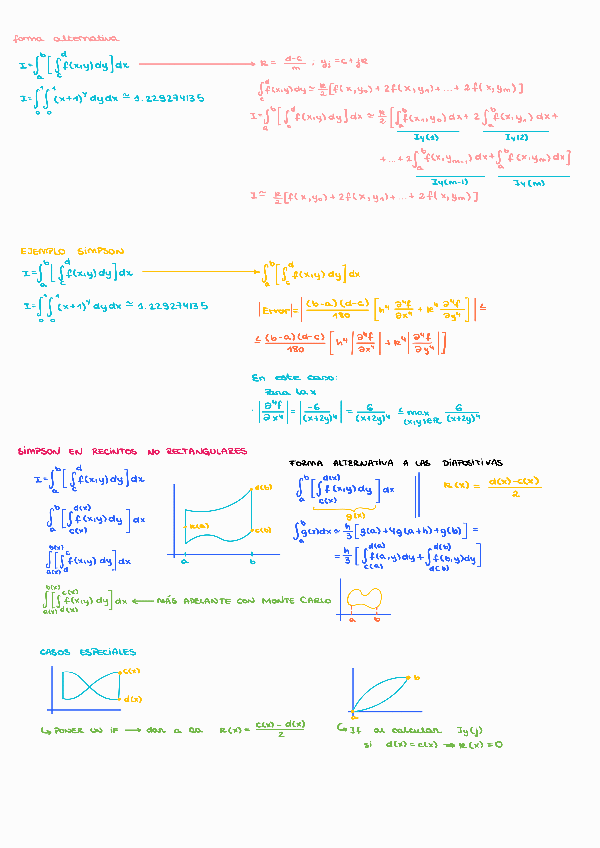 forma alternativa
I = ∫_a^b [∫_c^d f(x,y) dy] dx → k = (d-c)/m ; y_j = c + jk
I = ∫_0^1 ∫_0^1 (x+1)^y dy dx ≃ 1.229274135
∫_c^d f(x,y) dy ≃ k/2 [f(x,y_0) + 2f(x,y_1) + ... + 2f(x,y_m)]
I = ∫_a^b [∫_c^d f(x,y) dy] dx ≃ k/2 [∫_a^b f(x,y_0) dx + 2∫_a^b f(x,y_1) dx +
Iy(1) Iy(2)
+ ... + 2∫_a^b f(x,y_{m-1}) dx + ∫_a^b f(x,y_m) dx]
Iy(m-1) Iy(m)
I ≃ k/2 [f(x,y_0) + 2f(x,y_1) + ... + 2f(x,y_m)]
EJEMPLO SIMPSON
I = ∫_a^b [∫_c^d f(x,y) dy] dx → ∫_a^b [∫_c^d f(x,y) dy] dx
I = ∫_0^1 ∫_0^1 (x+1)^y dy dx ≃ 1.229274135
|Error| = |(b-a)(d-c)/180 [h^4 ∂^4f/∂x^4 + k^4 ∂^4f/∂y^4]| ≤
≤ (b-a)(d-c)/180 [h^4 |∂^4f/∂x^4| + k^4 |∂^4f/∂y^4|]
En este caso:
Para la x
· |∂^4f/∂x^4| = |-6/(x+2y)^4| = 6/(x+2y)^4 ≤ max (x,y)∈R 6/(x+2y)^4
SIMPSON EN RECINTOS NO RECTANGULARES
I = ∫_a^b [∫_c^d f(x,y) dy] dx
∫_a^b [∫_{c(x)}^{d(x)} f(x,y) dy] dx
∫_{a(x)}^{b(x)} [∫_d^c f(x,y) dy] dx
d(b)
k(a)
c(b)
a b
FORMA ALTERNATIVA A LAS DIAPOSITIVAS
∫_a^b [∫_{c(x)}^{d(x)} f(x,y) dy] dx
g(x)
k(x) = (d(x)-c(x))/2
∫_a^b g(x) dx ≃ h/3 [g(a) + 4g(a+h) + g(b)] =
= h/3 [∫_{c(a)}^{d(a)} f(a,y) dy + ∫_{d(b)}^{d(b)} f(b,y) dy]
∫_{a(x)}^{b(x)} [∫_{d(x)}^{c(x)} f(x,y) dy] dx ← MÁS ADELANTE CON MONTE CARLO
a b
CASOS ESPECIALES
c(x)
d(x)
b
↳ PONER UN IF → dar a la k(x) = (c(x)-d(x))/2
↳ If al calcular Iy(j)
si d(x) = c(x) ⇒ k(x) = 0